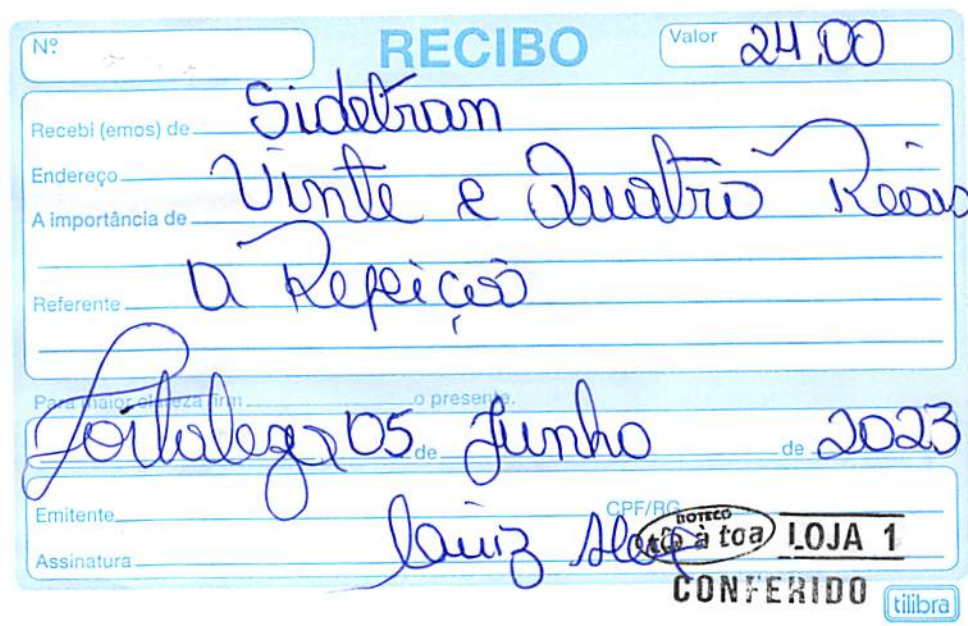 Nº RECIBO Valor 24,00
Recebi (emos) de Sidetran
Endereço
A importância de Vinte e Quatro Reais
Referente a Refeição
Para maior clareza firm o presente.
Fortaleza 05 de Junho de 2023
Emitente CPF/RG
Assinatura Luiz
BOTECO
tô à toa LOJA 1
CONFERIDO
tilibra